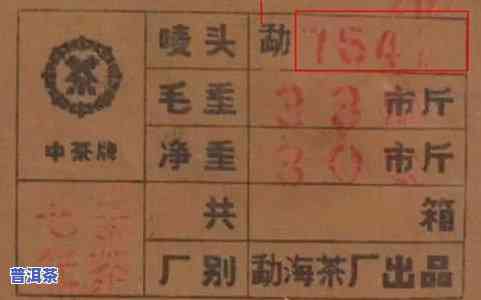 茶
中茶牌
唛头 勐 754
毛重 33 市斤
净重 30 市斤
共 箱
厂别 勐海茶厂出品
普洱茶